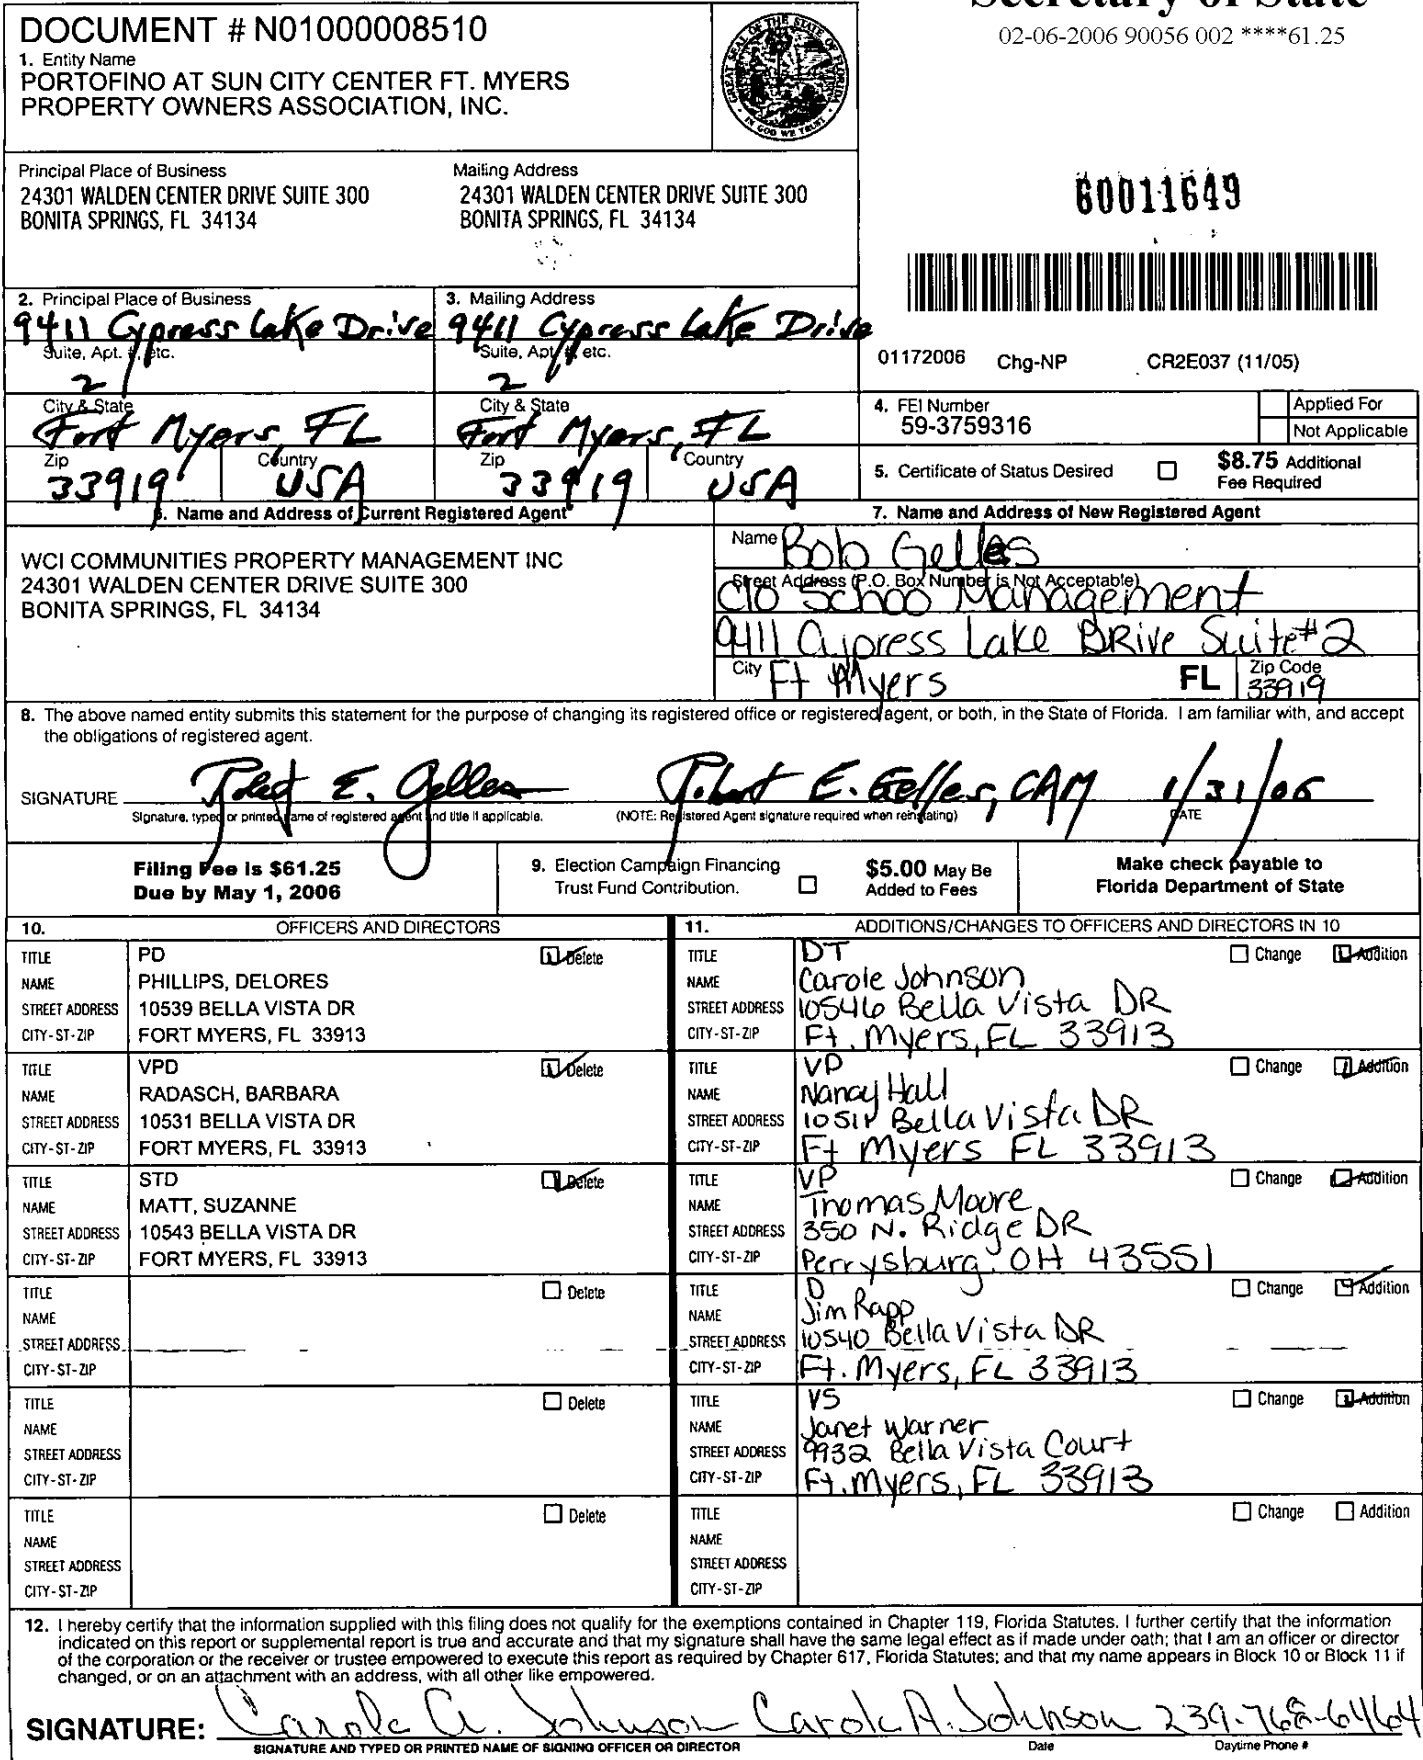 Secretary of State
02-06-2006 90056 002 ****61.25
DOCUMENT # N01000008510
1. Entity Name
PORTOFINO AT SUN CITY CENTER FT. MYERS
PROPERTY OWNERS ASSOCIATION, INC.
GREAT SEAL OF THE STATE OF FLORIDA
IN GOD WE TRUST
Principal Place of Business
24301 WALDEN CENTER DRIVE SUITE 300
BONITA SPRINGS, FL 34134
Mailing Address
24301 WALDEN CENTER DRIVE SUITE 300
BONITA SPRINGS, FL 34134
60011649
2. Principal Place of Business
9411 Cypress Lake Drive
Suite, Apt. #, etc.
2
City & State
Fort Myers, FL
Zip
33919
Country
USA
3. Mailing Address
9411 Cypress Lake Drive
Suite, Apt. #, etc.
2
City & State
Fort Myers, FL
Zip
33919
Country
USA
01172006 Chg-NP CR2E037 (11/05)
4. FEI Number
59-3759316
Applied For
Not Applicable
5. Certificate of Status Desired
$8.75 Additional
Fee Required
6. Name and Address of Current Registered Agent
WCI COMMUNITIES PROPERTY MANAGEMENT INC
24301 WALDEN CENTER DRIVE SUITE 300
BONITA SPRINGS, FL 34134
7. Name and Address of New Registered Agent
Name Bob Gelles
Street Address (P.O. Box Number is Not Acceptable)
C/O Schoo Management
9411 Cypress Lake DRive Suite #2
City Ft Myers FL Zip Code 33919
8. The above named entity submits this statement for the purpose of changing its registered office or registered agent, or both, in the State of Florida. I am familiar with, and accept
the obligations of registered agent.
SIGNATURE Robert E. Gelles Robert E. Gelles, CAM 1/31/06
Signature, typed or printed name of registered agent and title if applicable. (NOTE: Registered Agent signature required when reinstating) DATE
Filing Fee is $61.25
Due by May 1, 2006
9. Election Campaign Financing
Trust Fund Contribution.
$5.00 May Be
Added to Fees
Make check payable to
Florida Department of State
10. OFFICERS AND DIRECTORS
TITLE PD Delete
NAME PHILLIPS, DELORES
STREET ADDRESS 10539 BELLA VISTA DR
CITY-ST-ZIP FORT MYERS, FL 33913
TITLE VPD Delete
NAME RADASCH, BARBARA
STREET ADDRESS 10531 BELLA VISTA DR
CITY-ST-ZIP FORT MYERS, FL 33913
TITLE STD Delete
NAME MATT, SUZANNE
STREET ADDRESS 10543 BELLA VISTA DR
CITY-ST-ZIP FORT MYERS, FL 33913
TITLE Delete
NAME
STREET ADDRESS
CITY-ST-ZIP
TITLE Delete
NAME
STREET ADDRESS
CITY-ST-ZIP
TITLE Delete
NAME
STREET ADDRESS
CITY-ST-ZIP
11. ADDITIONS/CHANGES TO OFFICERS AND DIRECTORS IN 10
TITLE DT Change Addition
NAME Carole Johnson
STREET ADDRESS 10546 Bella Vista DR
CITY-ST-ZIP Ft. Myers, FL 33913
TITLE VP Change Addition
NAME Nancy Hall
STREET ADDRESS Bella Vista DR
CITY-ST-ZIP Ft Myers FL 33913
TITLE VP Change Addition
NAME Thomas Moore
STREET ADDRESS 350 N. Ridge DR
CITY-ST-ZIP Perrysburg, OH 43551
TITLE D Change Addition
NAME Jim Rapp
STREET ADDRESS 10540 Bella Vista DR
CITY-ST-ZIP Ft. Myers, FL 33913
TITLE VS Change Addition
NAME Janet Warner
STREET ADDRESS 9932 Bella Vista Court
CITY-ST-ZIP Ft. Myers, FL 33913
TITLE Change Addition
NAME
STREET ADDRESS
CITY-ST-ZIP
12. I hereby certify that the information supplied with this filing does not qualify for the exemptions contained in Chapter 119, Florida Statutes. I further certify that the information
indicated on this report or supplemental report is true and accurate and that my signature shall have the same legal effect as if made under oath; that I am an officer or director
of the corporation or the receiver or trustee empowered to execute this report as required by Chapter 617, Florida Statutes; and that my name appears in Block 10 or Block 11 if
changed, or on an attachment with an address, with all other like empowered.
SIGNATURE: Carole A. Johnson Carole A. Johnson 239-768-6464
SIGNATURE AND TYPED OR PRINTED NAME OF SIGNING OFFICER OR DIRECTOR Date Daytime Phone #